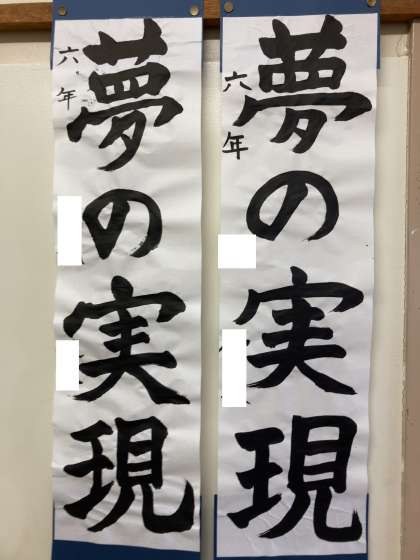 夢の実現
六年
夢の実現
六年